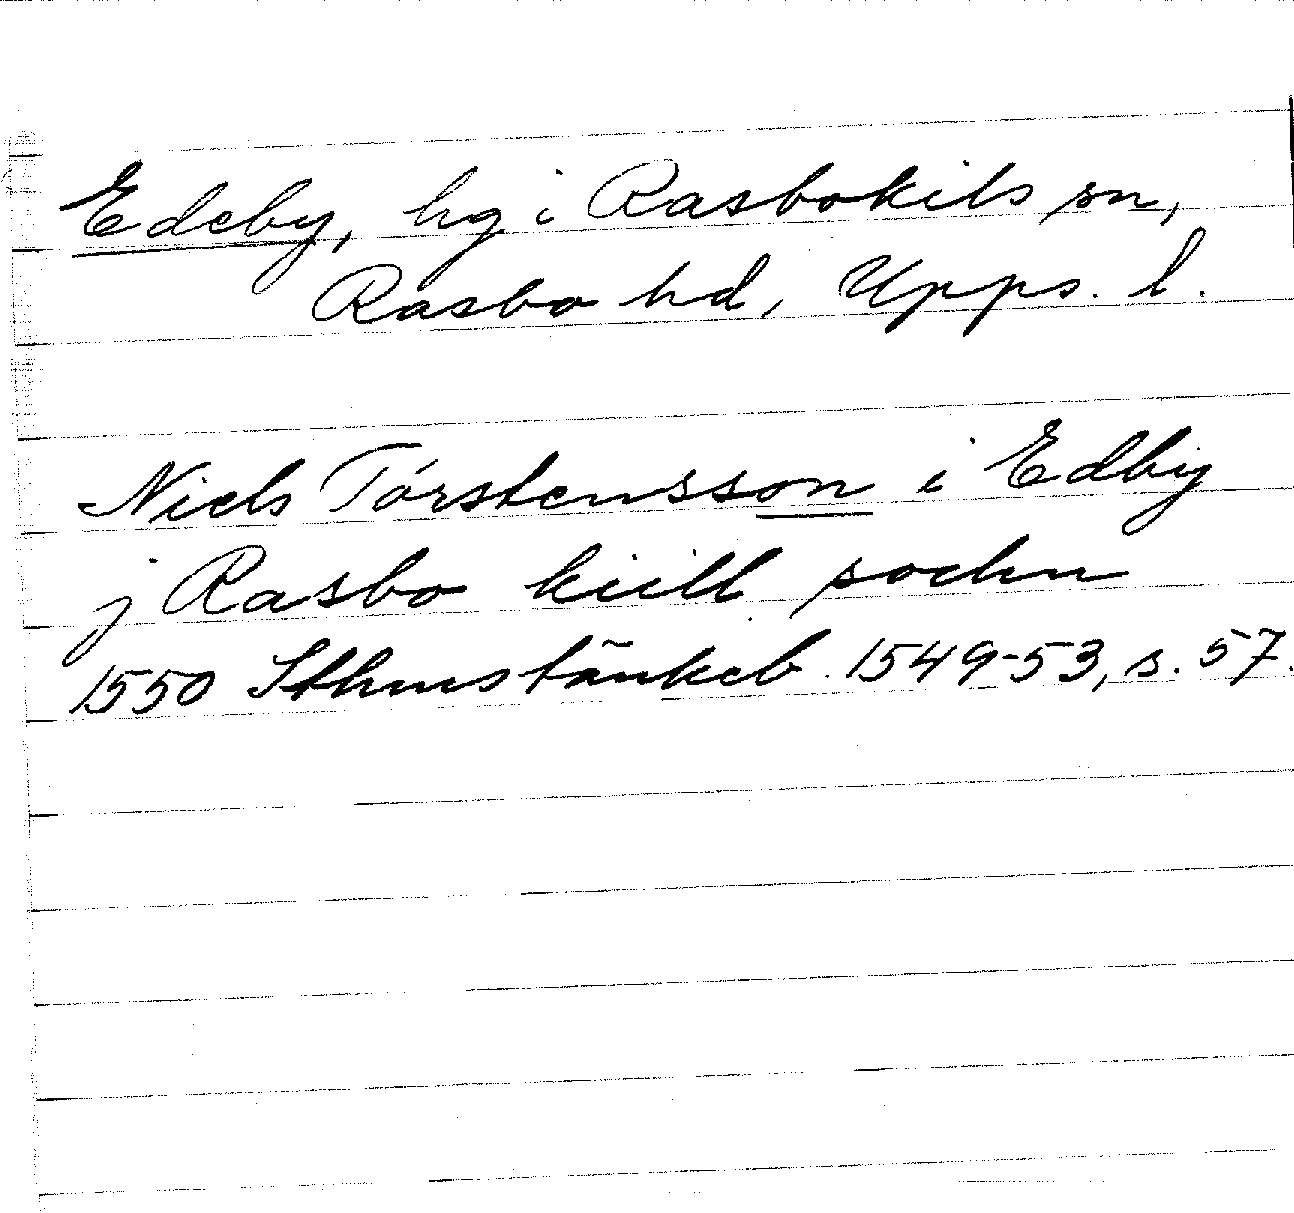 Edeby, hg i Rasbokils sn,
Rasbo hd, Upps. l.
Niels Torstensson i Edby
j Rasbo kiill sochn
1550 Sthms tänkeb. 1549-53, s. 57.